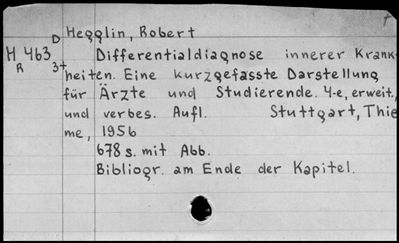 D Hegglin, Robert
H 463 Differentialdiagnose innerer Krank-
R 3+ heiten. Eine kurzgefasste Darstellung
für Ärzte und Studierende. 4-e, erweit.,
und verbes. Aufl. Stuttgart, Thie
me, 1956
678 s. mit Abb.
Bibliogr. am Ende der Kapitel.